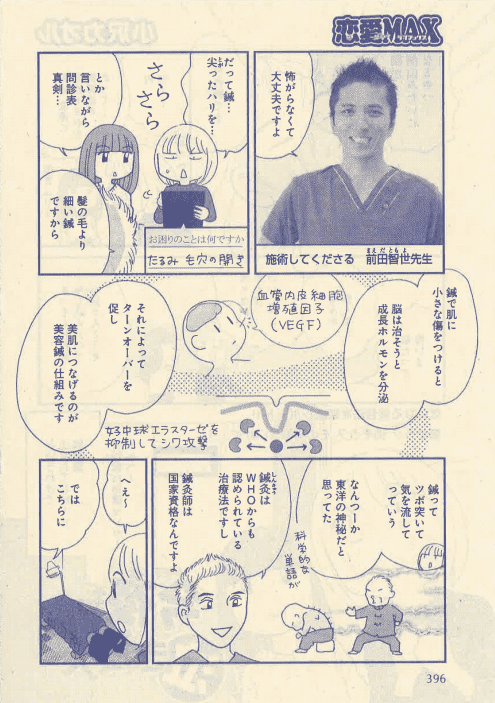 恋愛MAX
怖がらなくて
大丈夫ですよ
施術してくださる 前田智世先生
まえだともよ
だって鍼…
尖ったハリを…
さらさら
とか
言いながら
問診表
真剣…
お困りのことは何ですか
たるみ 毛穴の開き
髪の毛より
細い鍼
ですから
鍼で肌に
小さな傷をつけると
脳は治そうと
成長ホルモンを分泌
血管内皮細胞
増殖因子
(VEGF)
それによって
ターンオーバーを
促し
美肌につなげるのが
美容鍼の仕組みです
好中球エラスターゼを
抑制してシワ攻撃
鍼って
ツボ突いて
気を流して
っていう
なんつーか
東洋の神秘だと
思ってた
科学的な
単語が
鍼灸は
しんきゅう
WHOからも
認められている
治療法ですし
鍼灸師は
国家資格なんですよ
へぇ〜
では
こちらに
396